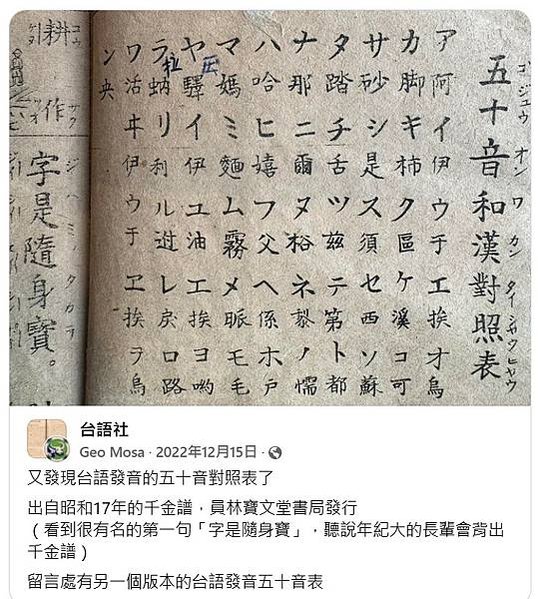 五十音和漢對照表
ゴ ジユウ オン ワ カン タイ シヤウ ヒヤウ
ア阿 イ伊 ウ于 エ挨 オ烏
カ脚 キ柿 ク區 ケ溪 コ可
サ砂 シ是 ス須 セ西 ソ蘇
タ踏 チ舌 ツ茲 テ第 ト都
ナ那 ニ爾 ヌ ネ ノ懦
ハ哈 ヒ嬉 フ父 ヘ係 ホ戶
マ媽 ミ麵 ム霧 メ脈 モ毛
ヤ驛 イ伊 ユ油 エ挨 ヨ喲
ラ蚋 拉 リ利 ル レ戾 ロ路
ワ活 ヰ伊 ウ于 ヱ挨 ヲ烏
ン央
耕作
字是隨身寶。
台語社
Geo Mosa · 2022年12月15日 ·
又發現台語發音的五十音對照表了
出自昭和17年的千金譜，員林寶文堂書局發行
（看到很有名的第一句「字是隨身寶」，聽說年紀大的長輩會背出
千金譜）
留言處有另一個版本的台語發音五十音表